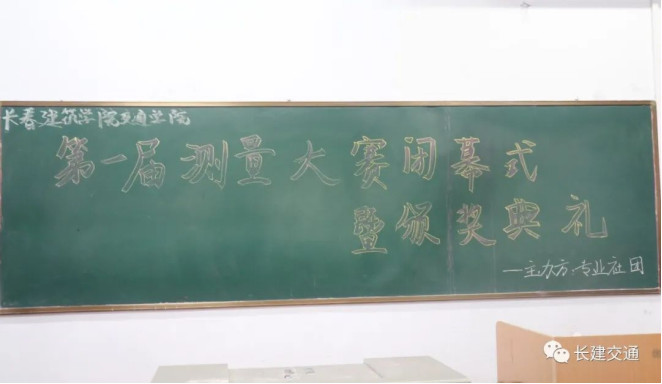 长春建筑学院交通学院
第一届测量大赛闭幕式
暨颁奖典礼
—主办方:专业社团
长建交通